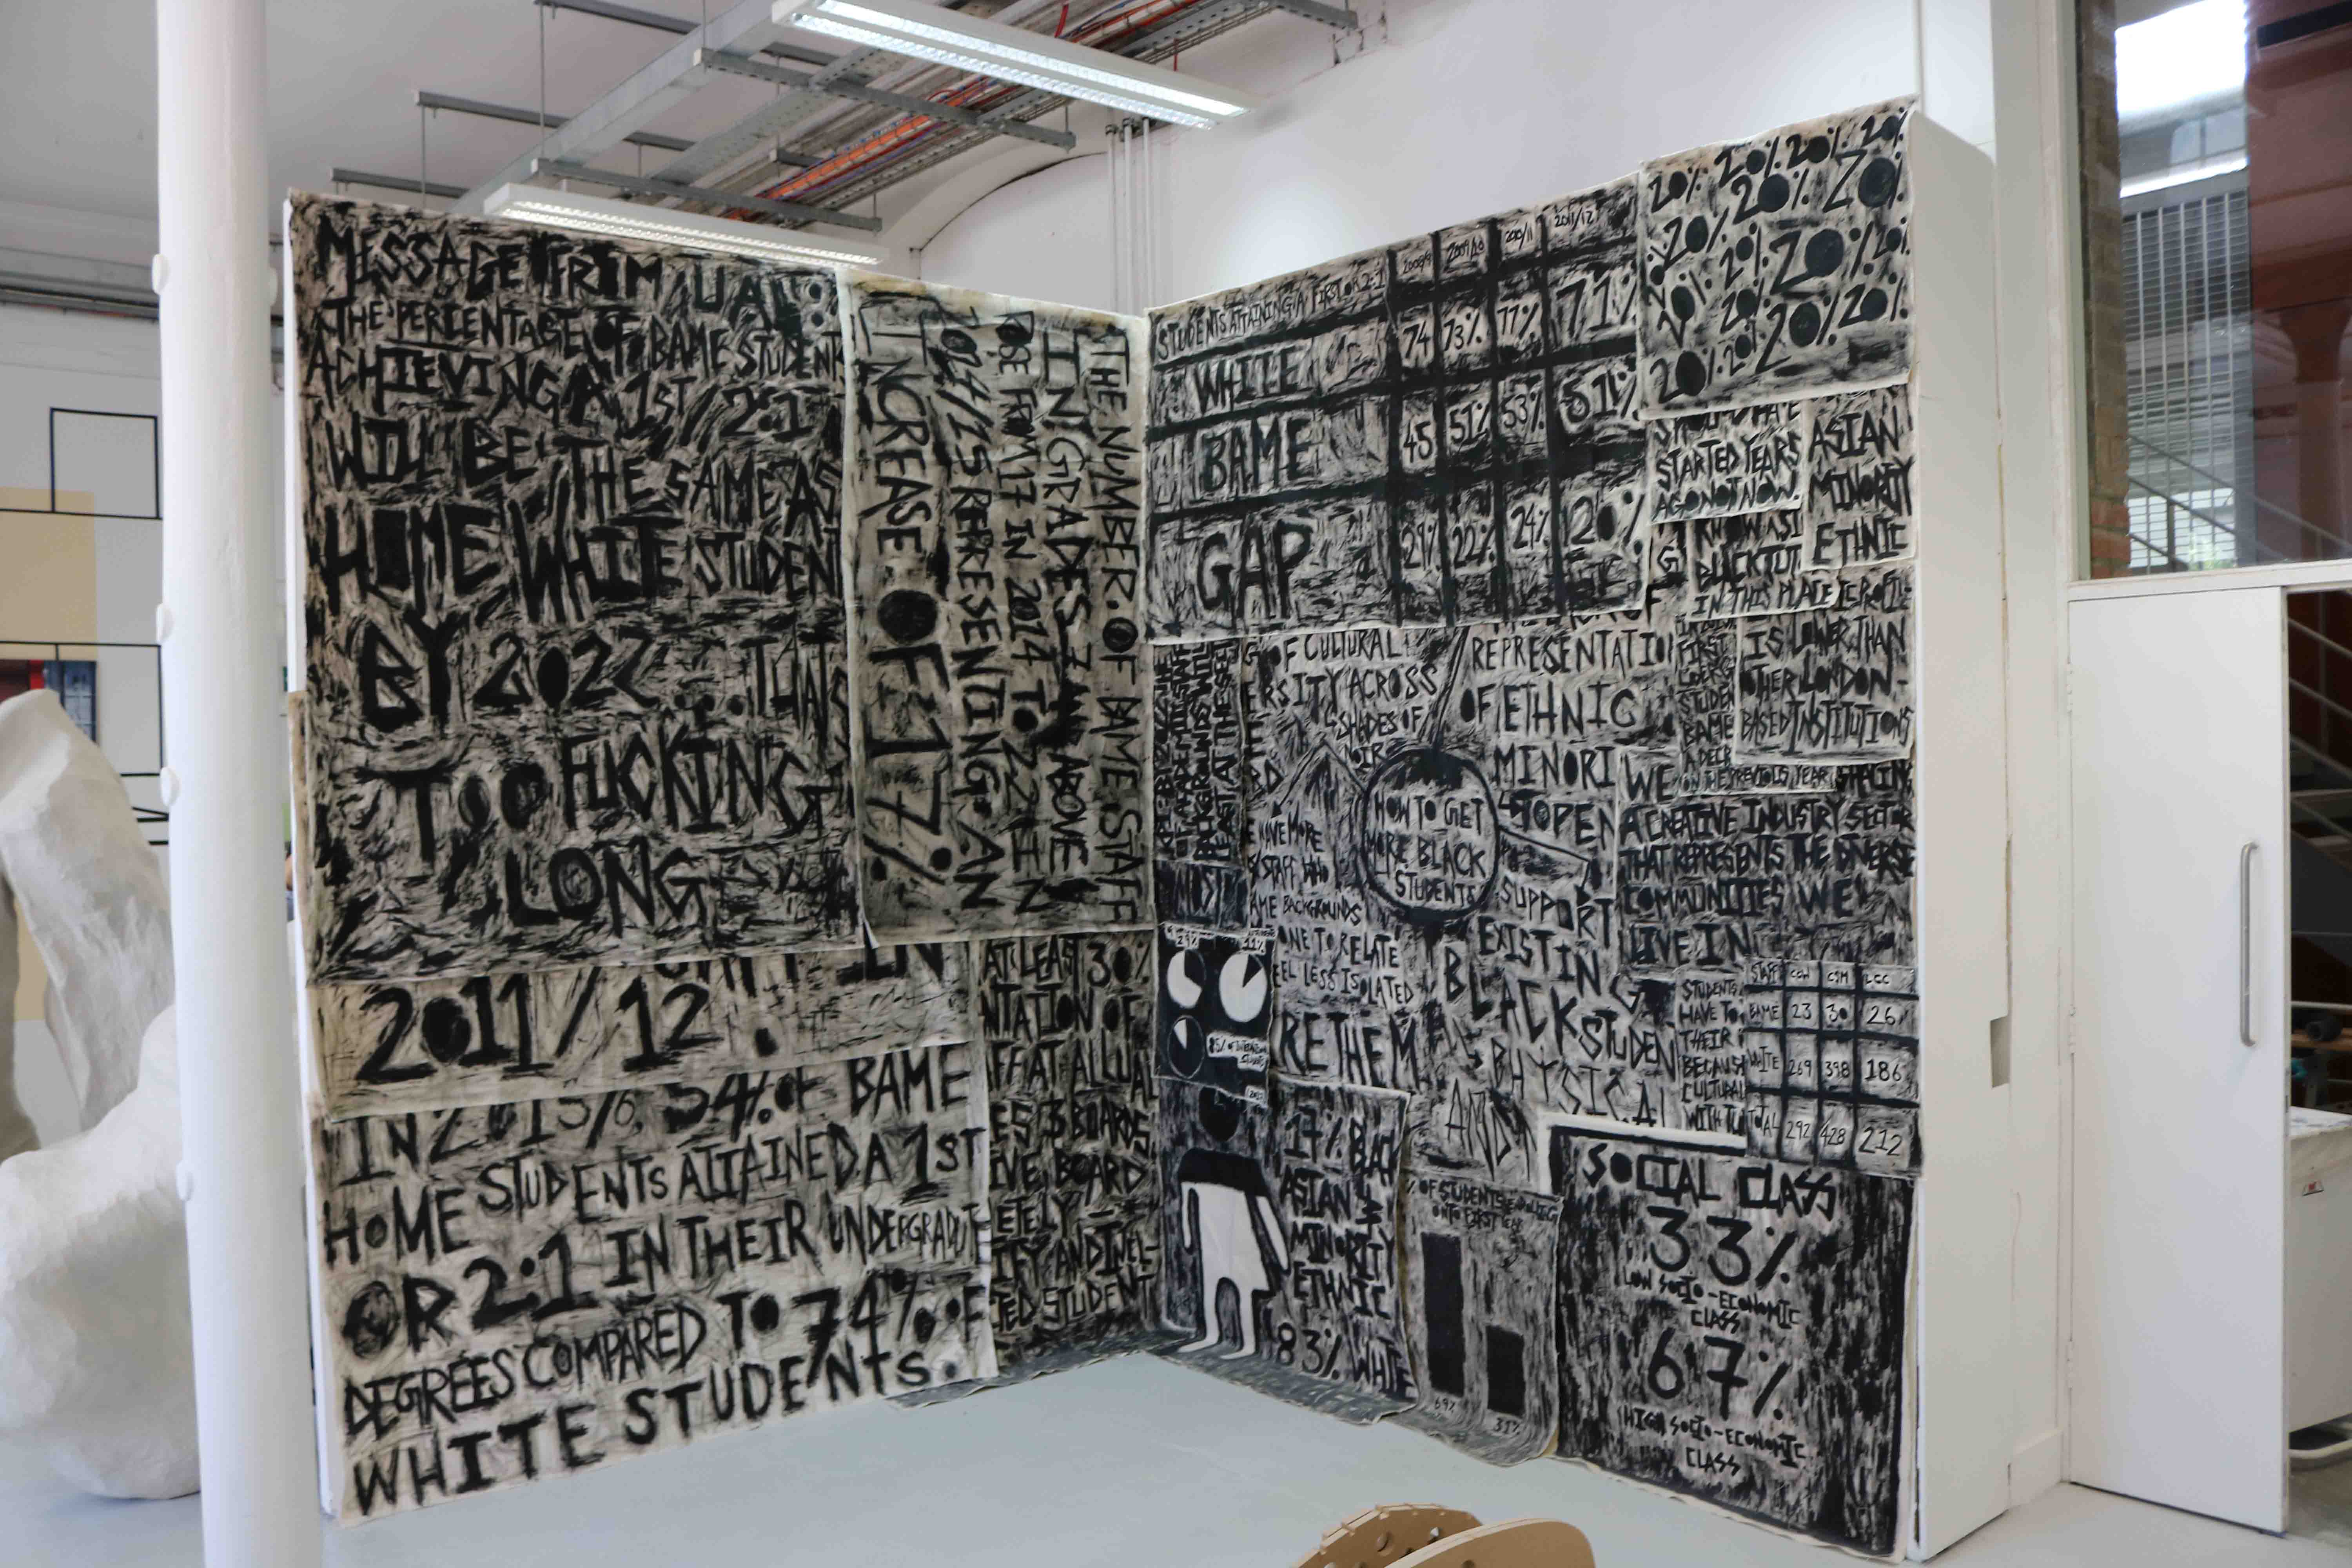 MESSAGE FROM UAL:
THE PERCENTAGE OF BAME STUDENT
ACHIEVING A 1ST/2:1
WILL BE THE SAME AS
HOME WHITE STUDENT
BY 2022 ... THATS
TOO FUCKING
LONG
THE NUMBER OF BAME STAFF
IN GRADES 7 AND ABOVE
ROSE FROM 17 IN 2014 TO 22 IN
2024/25 REPRESENTING AN
INCREASE OF 17%
2011/12.
IN 2015/6, 54% OF BAME
HOME STUDENTS ATTAINED A 1ST
OR 2:1 IN THEIR UNDERGRADUT
DEGREES COMPARED TO 74% OF
WHITE STUDENTS.
AT LEAST 30%
NTATION OF
FF AT ALL UAL
ES 3 BOARDS
IVE BOARD
ETELY
ITY AND INEL-
TED STUDENT
STUDENTS ATTAINING A FIRST OR 2:1 2008/9 2009/10 2010/11 2011/12
WHITE 74 73% 77% 71%
BAME 45 51% 53% 51%
GAP 29% 22% 24% 20%
20% 20% 20% 20%
20% 20% 20%
20% 20% 20%
20% 20% 20% 20%
20% 20% 20%
STARTED YEARS
AGO NOT NOW.
ASIAN
MINORITY
ETHNIC
KNOW AS I
BLACK TUT
IN THIS PLACE
IS LOWER THAN
OTHER LONDON-
BASED INSTITUTIONS
FIRST
STUDEN
BAME
A DECR
ON THE PREVIOUS YEAR
OF CULTURAL
ERSITY ACROSS
SHADES OF
NOIR
REPRESENTATIO
OF ETHNIC
MINORI
HOW TO GET
MORE BLACK
STUDENTS
STOPEN
SUPPORT
EXISTING
BLACK STUDEN
PHYSICAL
AND
E HAVE MORE
STAFF WHO
AME BACKGROUNDS
ONE TO RELATE
EEL LESS ISOLATED
RE THEM
MOST
WE SHAPING
A CREATIVE INDUSTRY SECTOR
THAT REPRESENTS THE DIVERSE
COMMUNITIES WE
LIVE IN
STUDENTS
HAVE TO
THEIR
BECAUS
CULTURAL
WITH TU
STAFF CCW CSM LCC
BAME 23 30 26
WHITE 269 398 186
TOTAL 292 428 212
29% 11%
17% BLACK
ASIAN &
MINORITY
ETHNIC
83% WHITE
% OF STUDENTS ENROLLING
ONTO FIRST YEAR
69% 31%
SOCIAL CLASS
33%
LOW SOCIO-ECONOMIC
CLASS
67%
HIGH SOCIO-ECONOMIC
CLASS